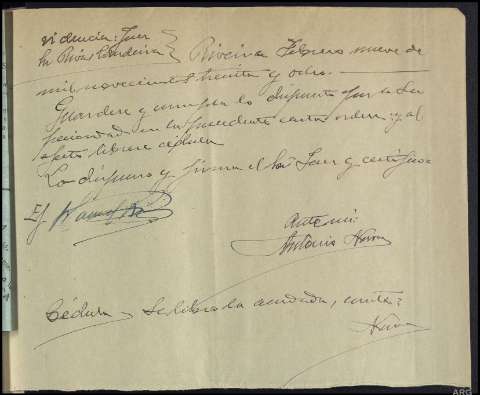 videncia: Juez
Sr. Rivas } Riveira Febrero nueve de
mil novecientos treinta y ocho.
Guardese y cumplase lo dispuesto por la Su
perioridad en la precedente carta orden y al
efecto librese cédula
Lo dispuso y firma el Sor Juez y certifico
Ef.
Ante mi:
Antonio
Cédula Se libro la acordada, certifico:
ARG